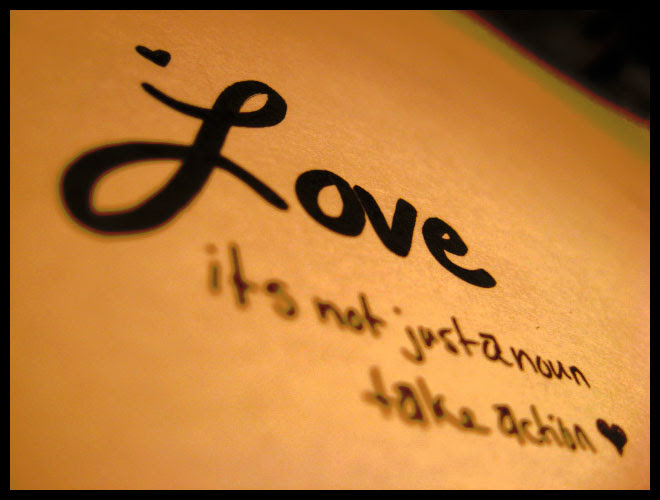 Love
its not just a noun
take action ♥